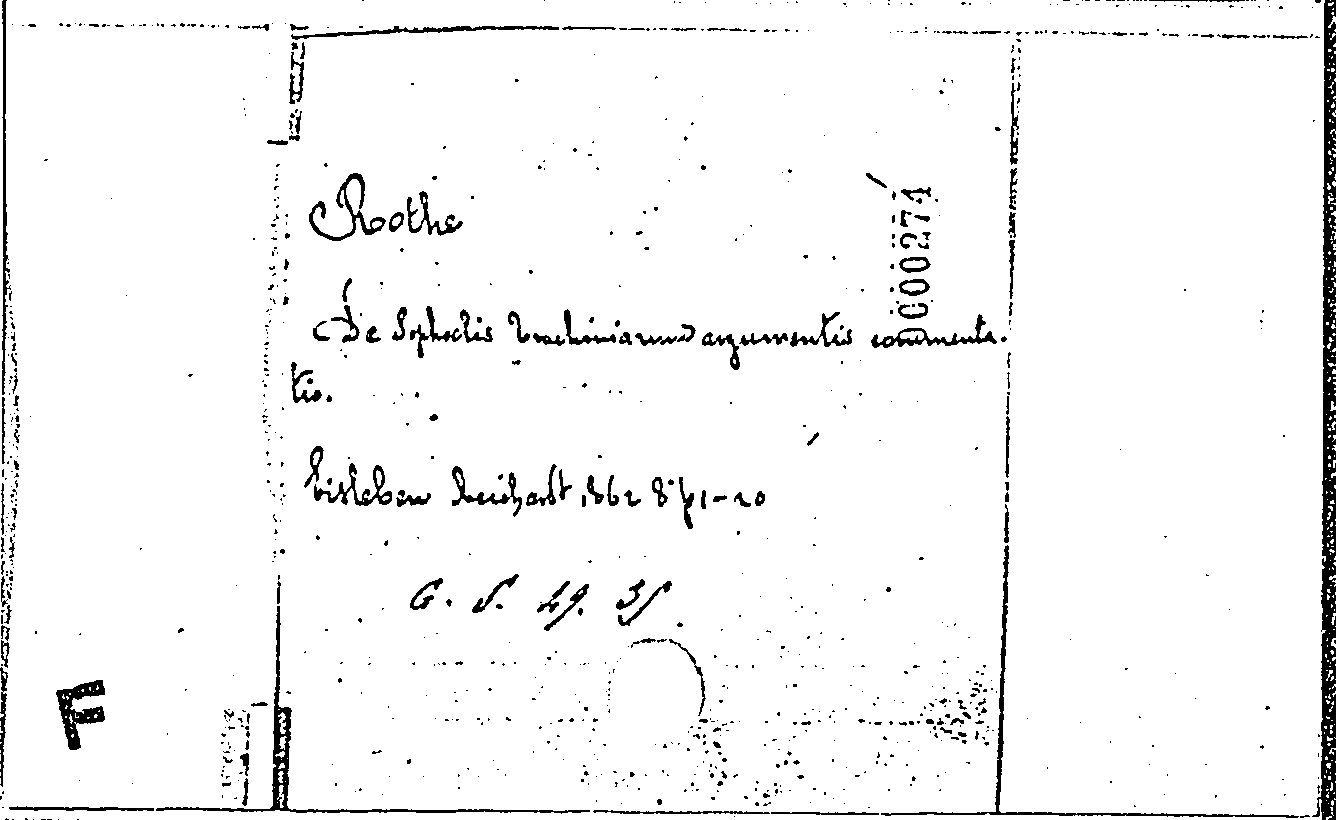 Rothe
0000274
De Sophoclis Trachiniarum argumentis commenta-
tio.
Eisleben Reichardt 1862 8° p 1-20
G. S. 49. 35
F